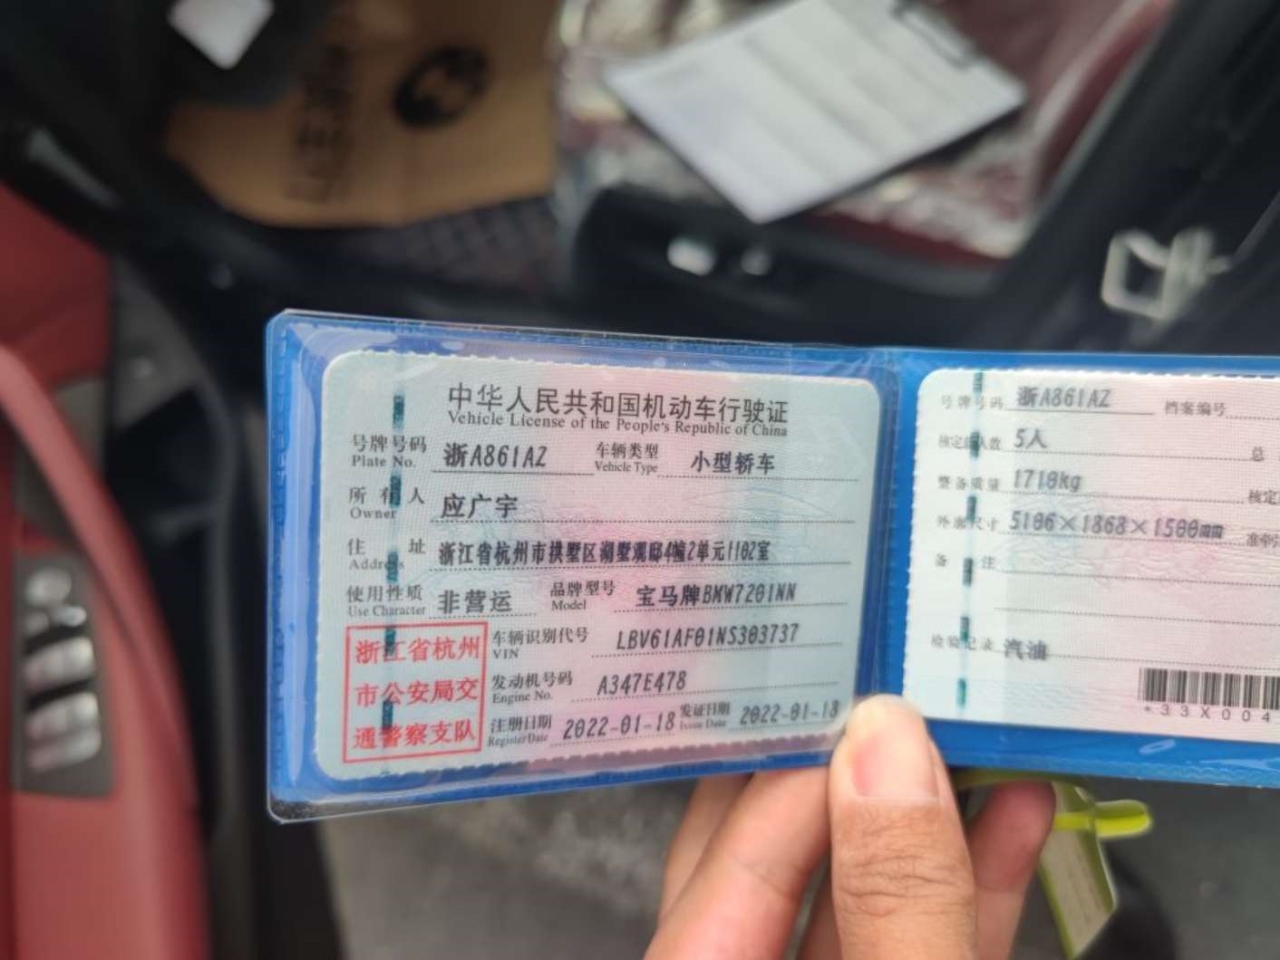 中华人民共和国机动车行驶证
Vehicle License of the People's Republic of China
号牌号码 浙A861AZ 车辆类型 小型轿车
Plate No. Vehicle Type
所有人 应广宇
Owner
住址 浙江省杭州市拱墅区湖墅观邸4幢2单元1102室
Address
使用性质 非营运 品牌型号 宝马牌BMW7201NN
Use Character Model
浙江省杭州
市公安局交
通警察支队
车辆识别代号 LBV61AF01NS303737
VIN
发动机号码 A347E478
Engine No.
注册日期 2022-01-18 发证日期 2022-01-18
Register Date Issue Date
号牌号码 浙A861AZ 档案编号
核定载人数 5人 总
整备质量 1710kg 核定
外廓尺寸 5106×1868×1500mm 准牵
备注
检验记录 汽油
*33X004